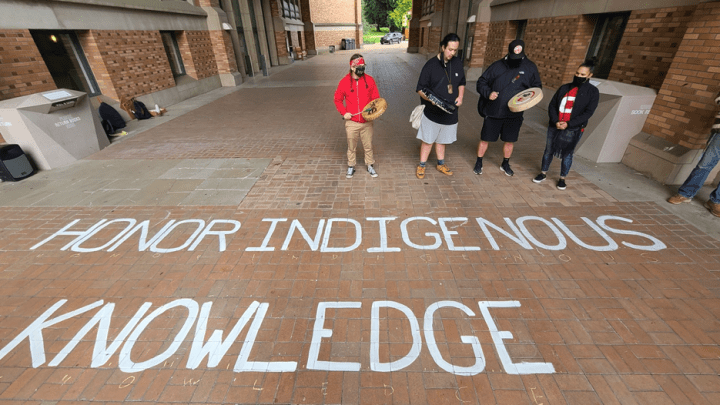 HONOR INDIGENOUS
KNOWLEDGE